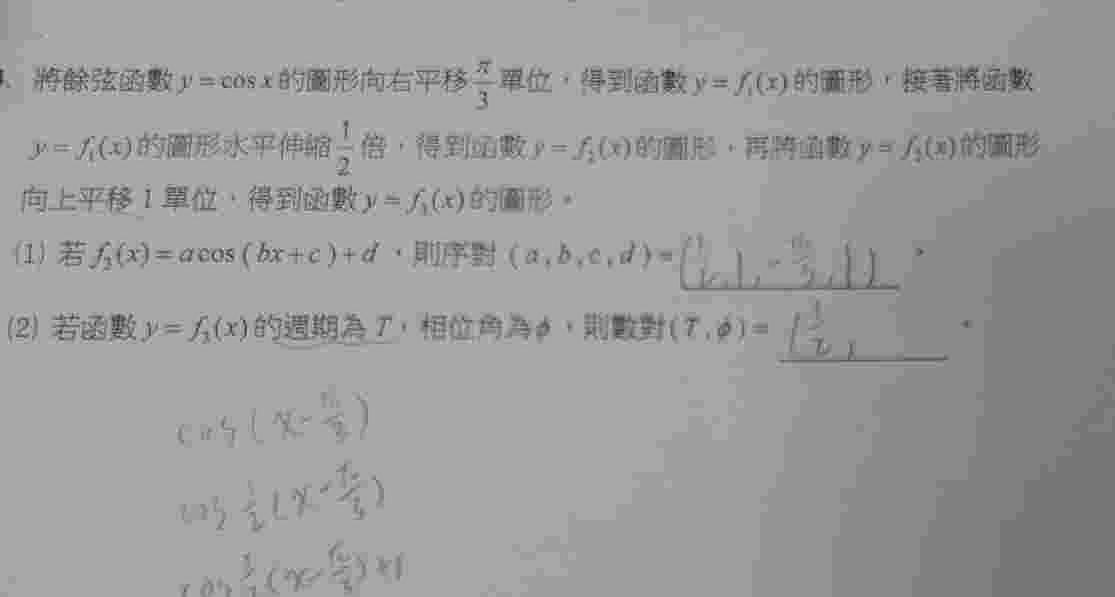 將餘弦函數 y = cos x 的圖形向右平移 π/3 單位，得到函數 y = f₁(x) 的圖形，接著將函數
y = f₁(x) 的圖形水平伸縮 1/2 倍，得到函數 y = f₂(x) 的圖形，再將函數 y = f₂(x) 的圖形
向上平移 1 單位，得到函數 y = f₃(x) 的圖形。
(1) 若 f₂(x) = a cos ( bx + c ) + d，則序對 ( a , b , c , d ) = ( 1/2, 1, -π/3, 1 )。
(2) 若函數 y = f₃(x) 的週期為 T，相位角為 ϕ，則數對 ( T , ϕ ) = ( 1/2 ,。
cos ( x - π/3 )
cos 1/2 ( x - π/3 )
cos 1/2 ( x - π/3 ) + 1